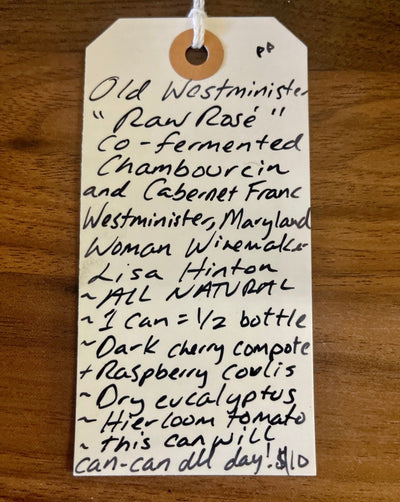 PP
Old Westminister
"Raw Rosé"
Co-fermented
Chambourcin
and Cabernet Franc
Westminister, Maryland
Woman Winemaker
Lisa Hinton
~ ALL NATURAL
~ 1 Can = 1/2 bottle
~ Dark cherry compote
+ Raspberry coulis
~ Dry eucalyptus
~ Hierloom tomato
~ this can will
can-can all day! $10